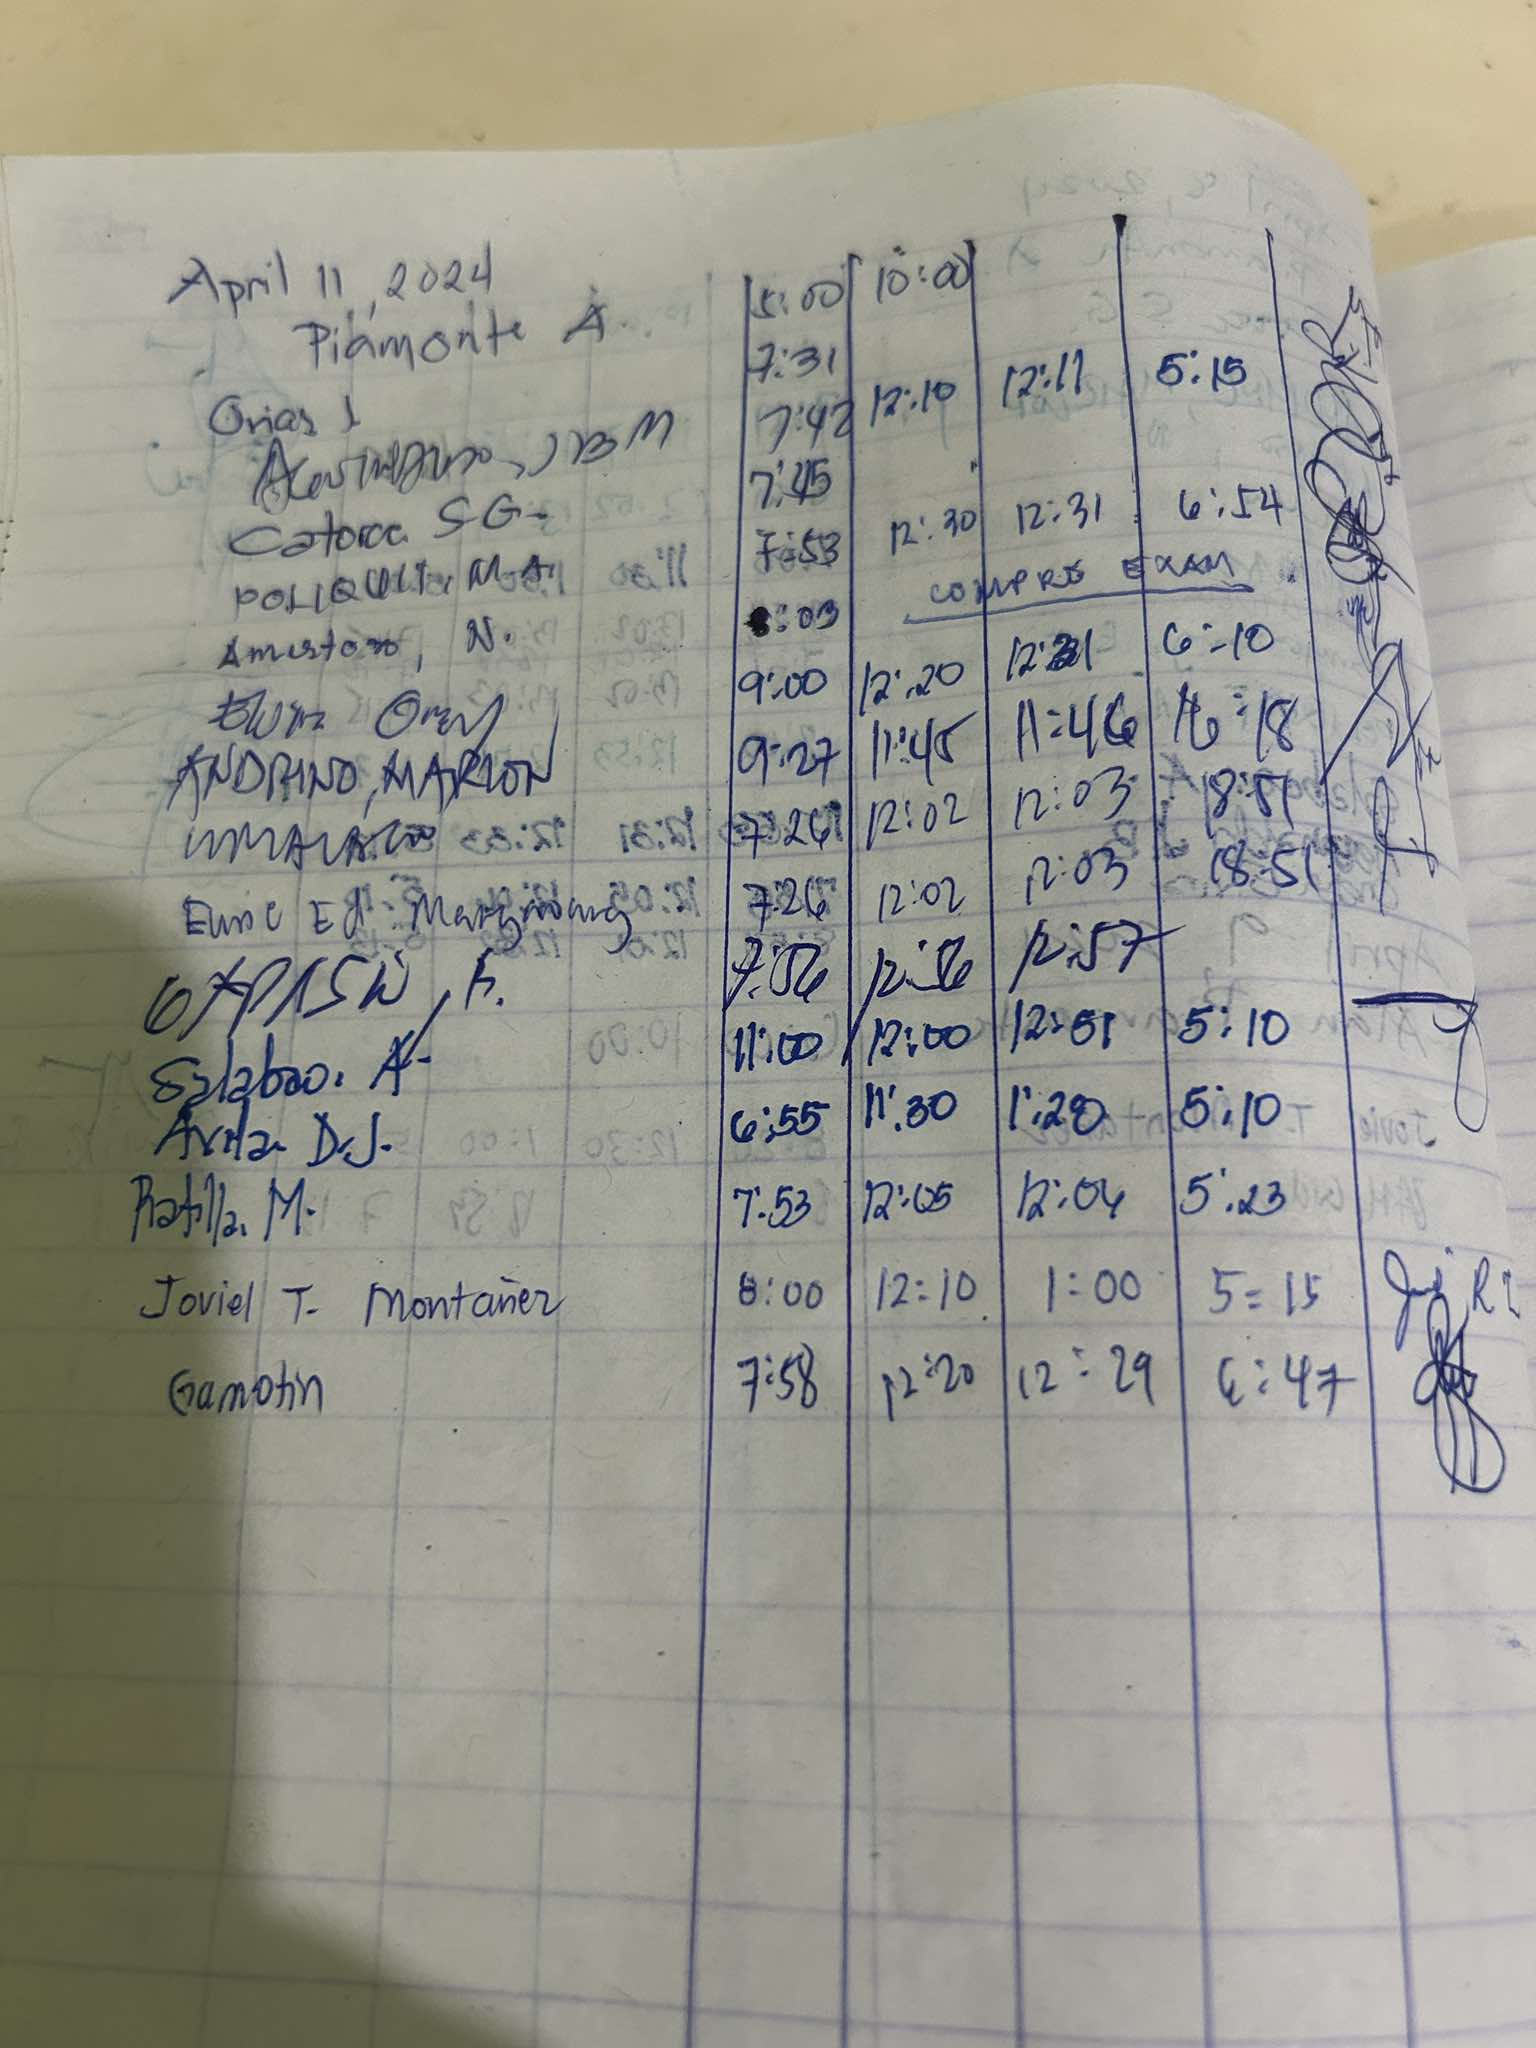 April 11, 2024
Piamonte A. 5:00 10:00
Orias J 7:31
JBM 7:42 12:10 12:11 5:15
Catorce SG. 7:45
POLIQUIT, M.A. 7:53 12:30 12:31 6:54
Amestoso, N. 8:03 COMPRE EXAM
9:00 12:20 6:10
ANDRINO, MARLON 9:27 11:45 11:46 16:18
7:26 12:02 12:03 18:51
Ed 7:26 12:02 12:03 18:51
7:56 12:56 12:57
Salabao. A. 11:00 12:00 12:01 5:10
Avila D.J. 6:55 11:30 1:20 5:10
Ratilla. M. 7:53 12:05 12:06 5:23
Joviel T. Montañez 8:00 12:10 1:00 5=15
Gamotin 7:58 12:20 12:29 6:47